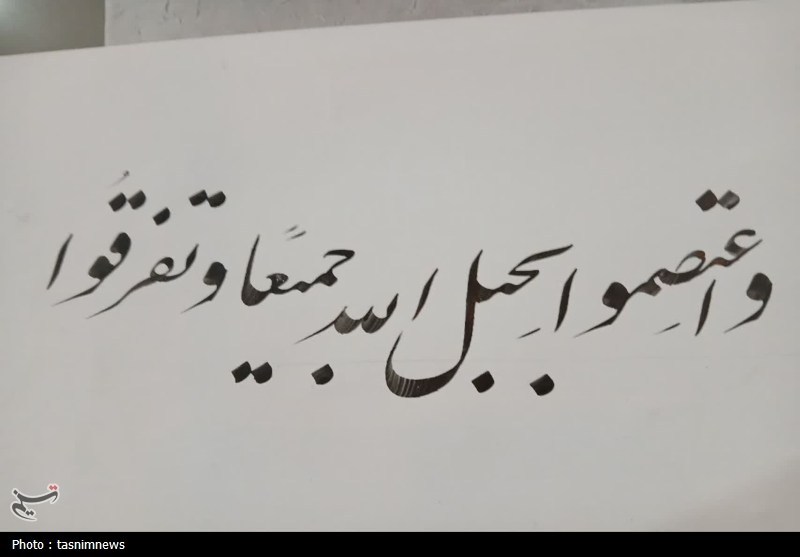 واعتصموا بحبل الله جمیعًا و تفرقُوا
تسنیم
Photo : tasnimnews